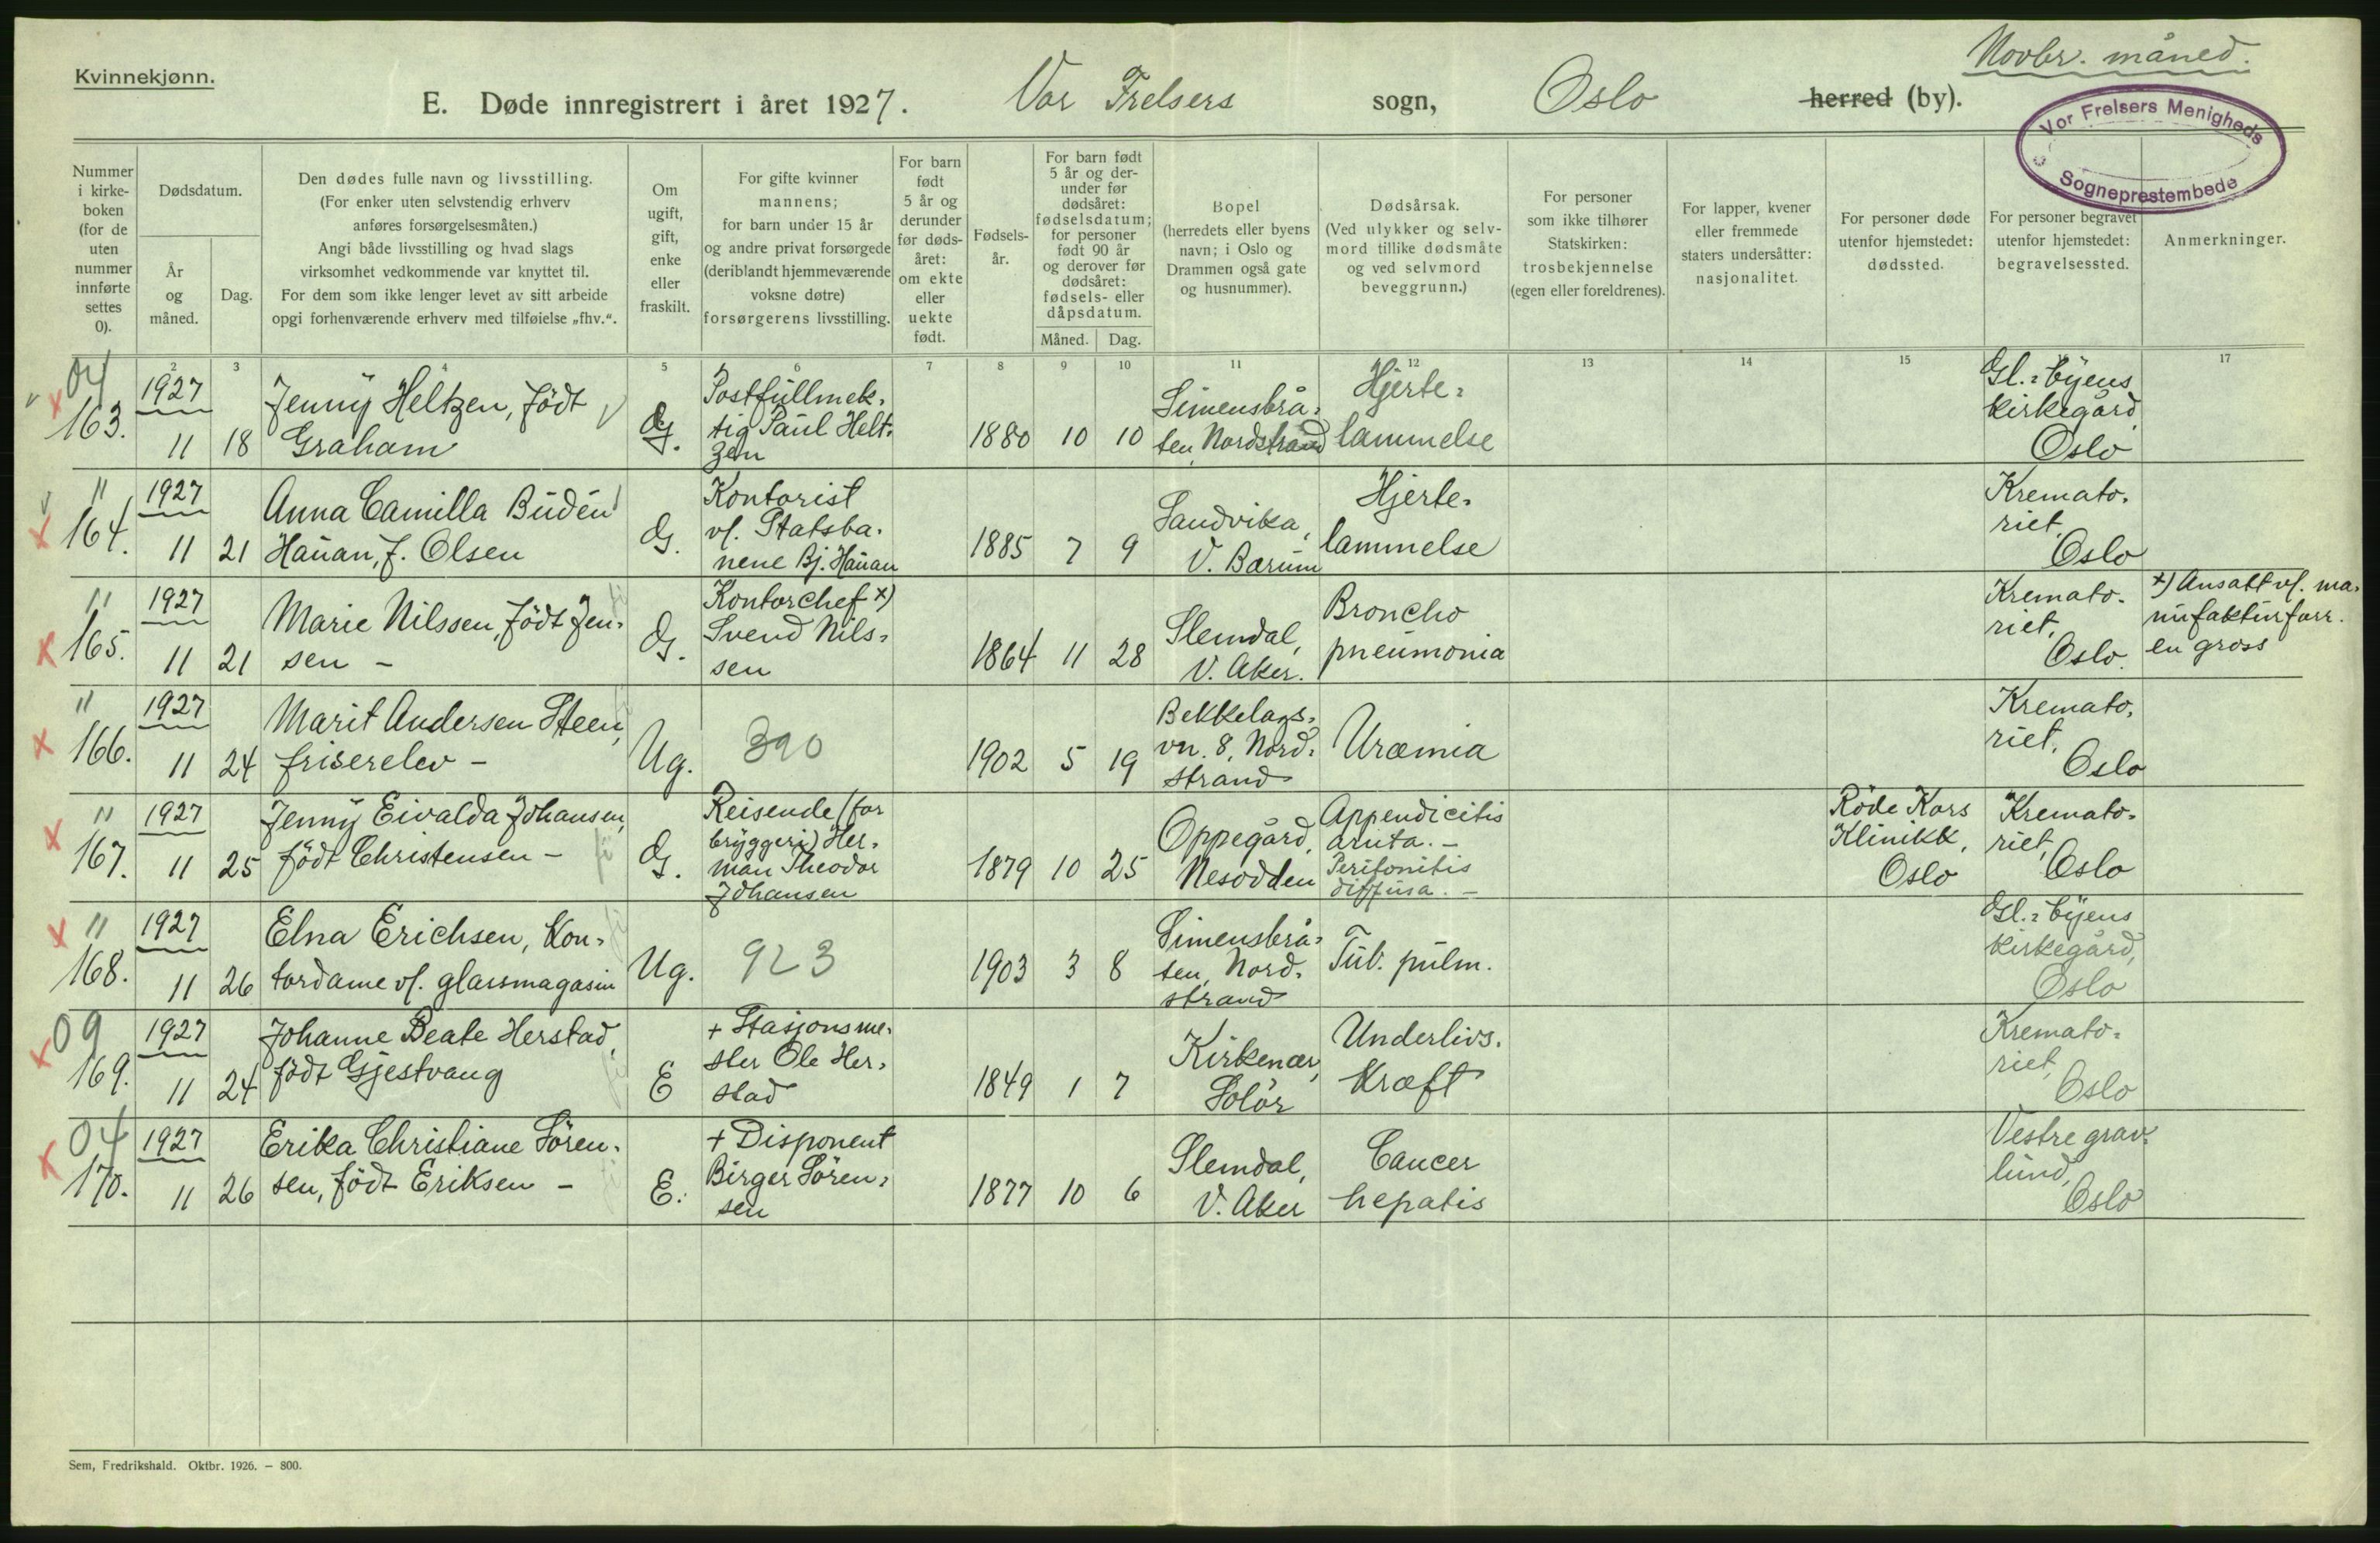 Novbr. måned.
Kvinnekjønn.
E. Døde innregistrert i året 1927. Vor Frelsers sogn, Oslo herred (by).
Vor Frelsers Menigheds
Sogneprestembede
Nummer
i kirke-
boken
(for de
uten
nummer
innførte
settes
0).
Dødsdatum.
År
og
måned.
Dag.
Den dødes fulle navn og livsstilling.
(For enker uten selvstendig erhverv
anføres forsørgelsesmåten.)
Angi både livsstilling og hvad slags
virksomhet vedkommende var knyttet til.
For dem som ikke lenger levet av sitt arbeide
opgi forhenværende erhverv med tilføielse „fhv.“.
Om
ugift,
gift,
enke
eller
fraskilt.
For gifte kvinner
mannens;
for barn under 15 år
og andre privat forsørgede
(deriblandt hjemmeværende
voksne døtre)
forsørgerens livsstilling.
For barn
født
5 år og
derunder
før døds-
året:
om ekte
eller
uekte
født.
Fødsels-
år.
For barn født
5 år og der-
under før
dødsåret:
fødselsdatum;
for personer
født 90 år
og derover før
dødsåret:
fødsels- eller
dåpsdatum.
Måned. Dag.
Bopel
(herredets eller byens
navn; i Oslo og
Drammen også gate
og husnummer).
Dødsårsak.
(Ved ulykker og selv-
mord tillike dødsmåte
og ved selvmord
beveggrunn.)
For personer
som ikke tilhører
Statskirken:
trosbekjennelse
(egen eller foreldrenes).
For lapper, kvener
eller fremmede
staters undersåtter:
nasjonalitet.
For personer døde
utenfor hjemstedet:
dødssted.
For personer begravet
utenfor hjemstedet:
begravelsessted.
Anmerkninger.
2 3 4 5 6 7 8 9 10 11 12 13 14 15 17
04
x 163.
1927
11 18
Jenny Heltzen, født
Graham
G.
Postfullmek-
tig Paul Helt-
zen
1880 10 10
Simensbrå-
ten, Nordstrand
Hjerte-
lammelse
Gl. byens
kirkegård
Oslo
"
x 164.
1927
11 21
Anna Camilla Budén
Hauan, f. Olsen
G.
Kontorist
v/. Statsba-
nene Bj. Hauan
1885 7 9
Sandvika,
V. Bærum
Hjerte-
lammelse
Kremato-
riet,
Oslo
"
x 165.
1927
11 21
Marie Nilssen, født Jen-
sen -
G.
Kontorchef x)
Svend Nils-
sen
1864 11 28
Slemdal,
V. Aker.
Broncho
pneumonia
Kremato-
riet,
Oslo.
x) Ansatt v/. ma-
nufakturforr.
en gross
"
x 166.
1927
11 24
Marit Andersen Steen,
friserelev -
Ug.
390
1902 5 19
Bekkelags-
vn. 8, Nord-
strand
Uræmia
Kremato-
riet,
Oslo
"
x 167.
1927
11 25
Jenny Eivalda Johansen,
født Christensen -
G.
Reisende (for
bryggeri) Her-
man Theodor
Johansen
1879 10 25
Oppegård,
Nesodden
Appendicitis
acuta. -
Peritonitis
diffusa. -
Røde Kors
Klinikk,
Oslo
Kremato-
riet,
Oslo
"
x 168.
1927
11 26
Elna Erichsen, Kon-
tordame v/. glassmagasin
Ug.
923
1903 3 8
Simensbrå-
ten, Nord-
strand
Tub. pulm.
Gl. byens
kirkegård,
Oslo
09
x 169.
1927
11 24
Johanne Beate Herstad,
født Gjestvang
E
+ Stasjonsme-
ster Ole Her-
stad
1849 1 7
Kirkenær,
Solør
Underlivs-
kræft
Kremato-
riet,
Oslo
04
x 170.
1927
11 26
Erika Christiane Søren-
sen, født Eriksen -
E.
+ Disponent
Birger Søren-
sen
1877 10 6
Slemdal,
V. Aker
Cancer
hepatis
Vestre grav-
lund,
Oslo
Sem, Fredrikshald. Oktbr. 1926. – 800.